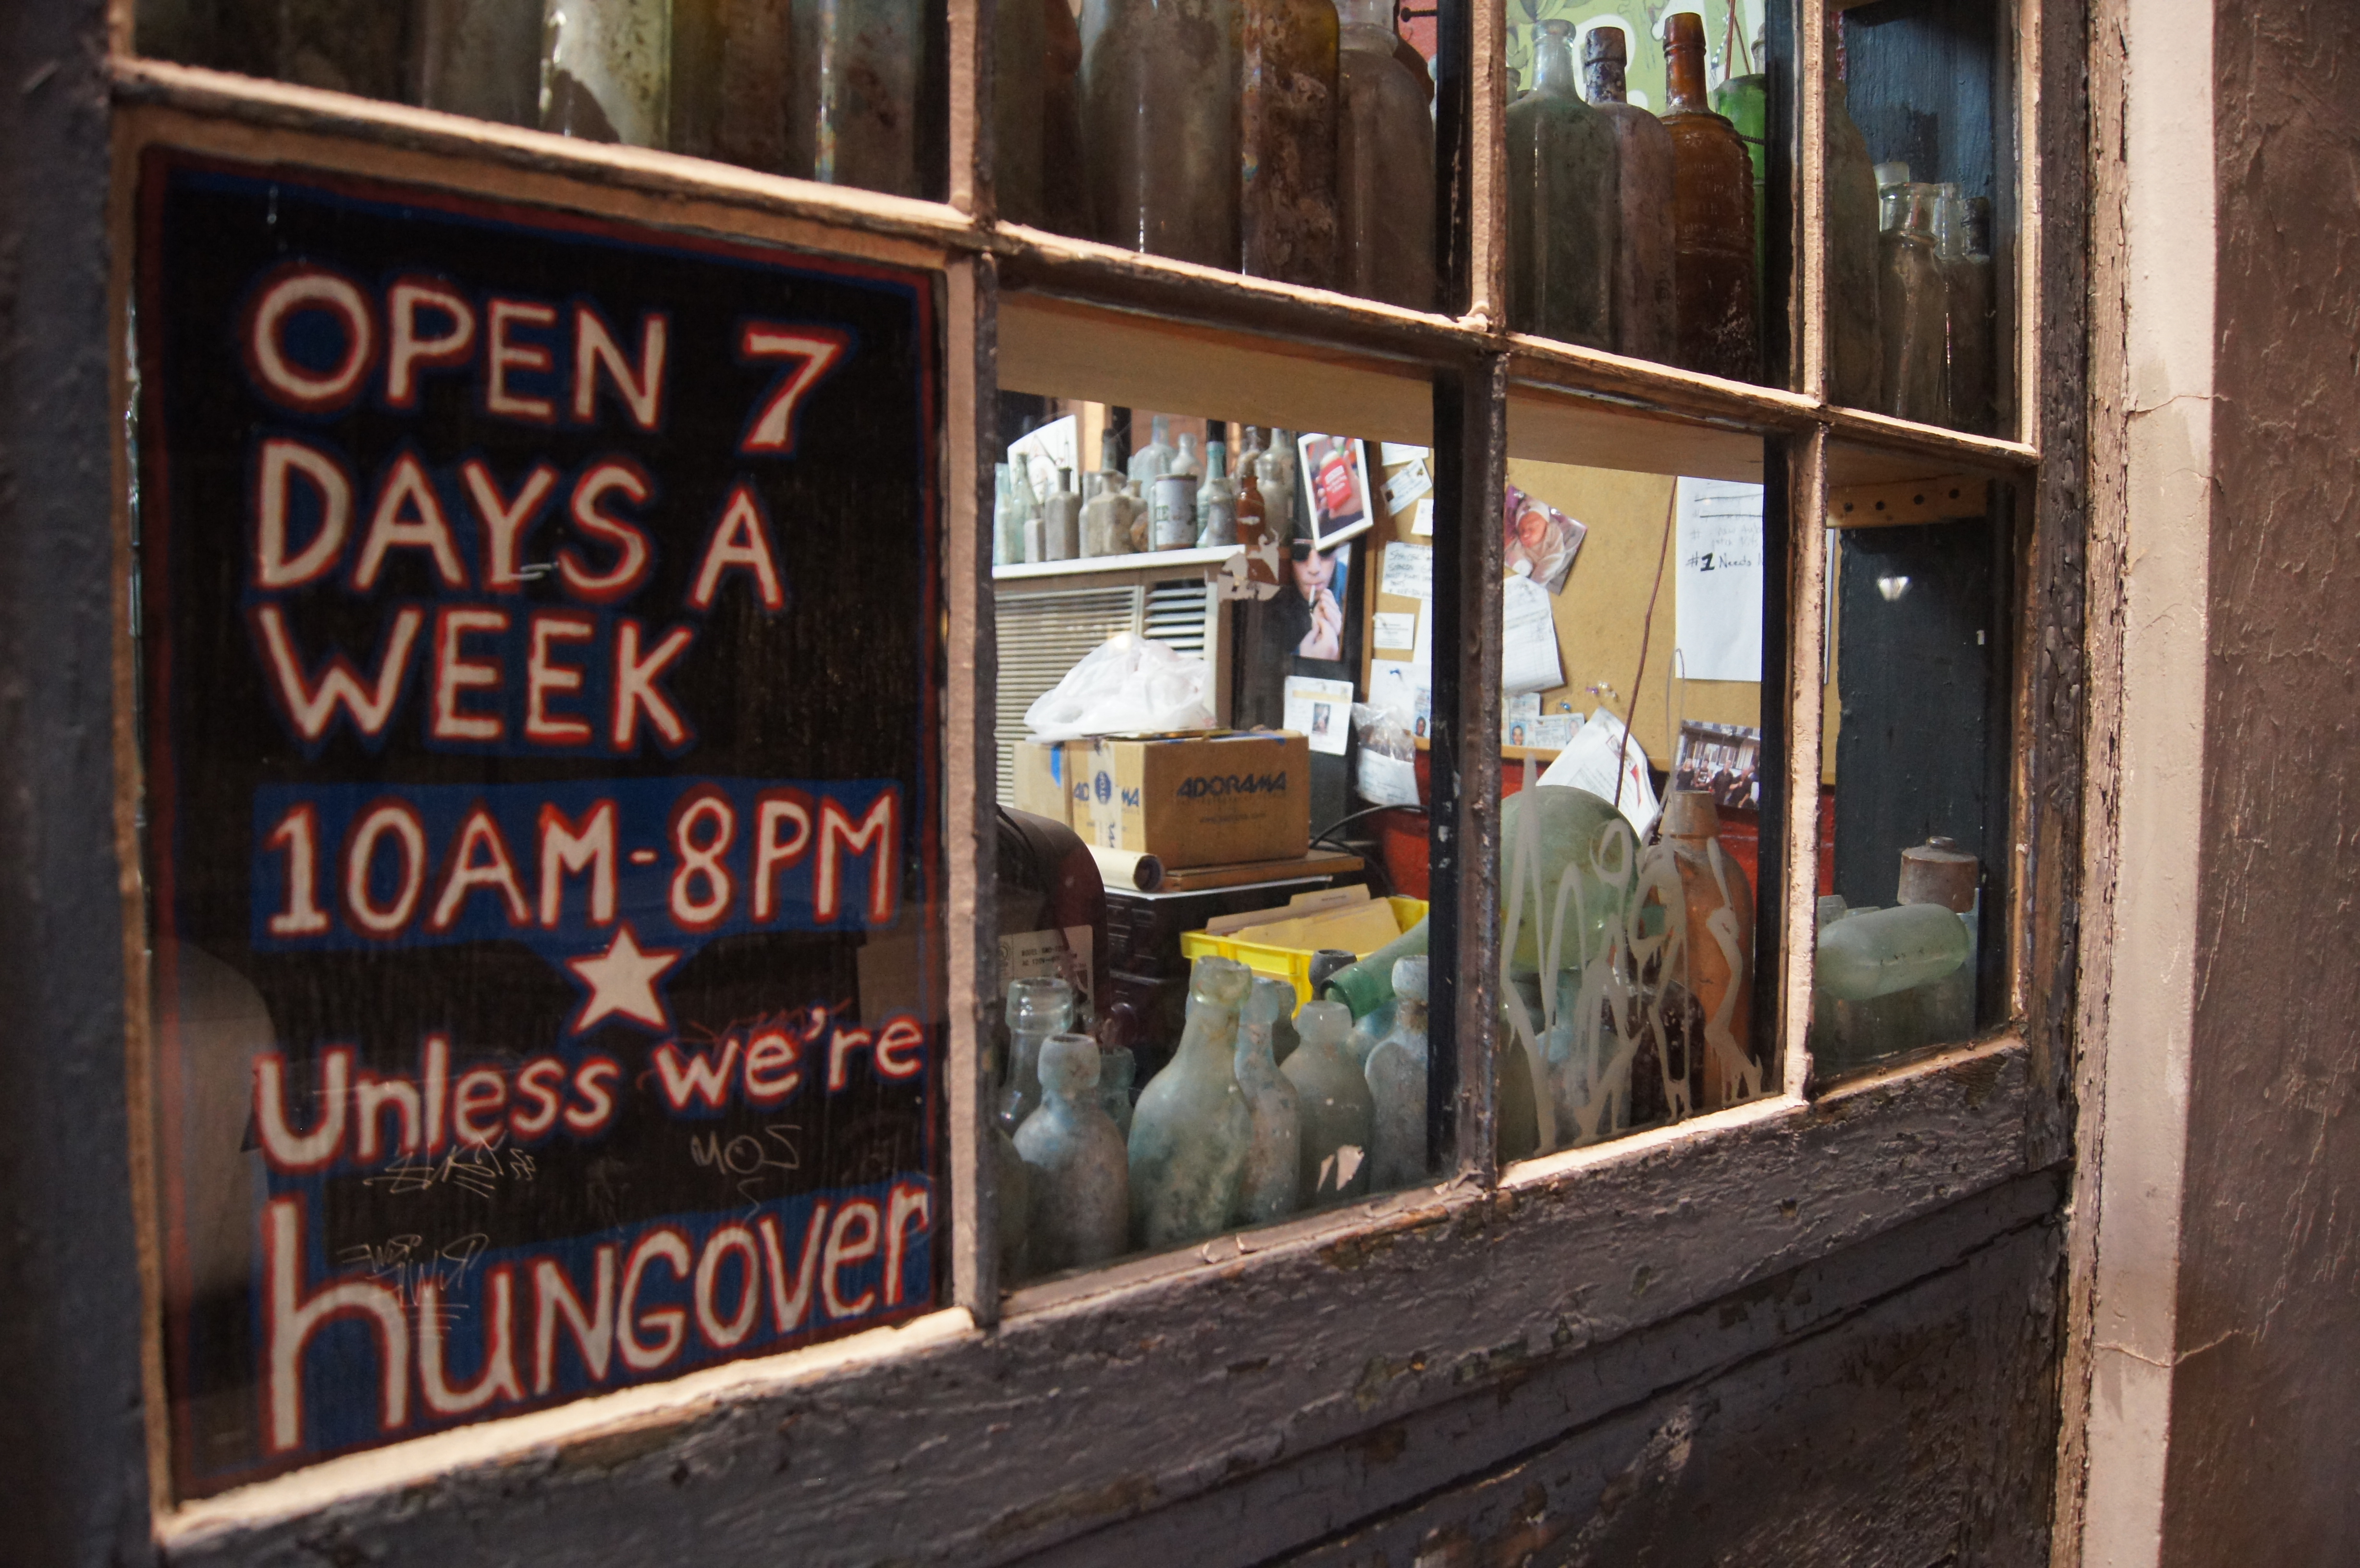 OPEN 7
DAYS A
WEEK
10AM-8PM
Unless we're
hungover
ADORAMA
#1 Needs